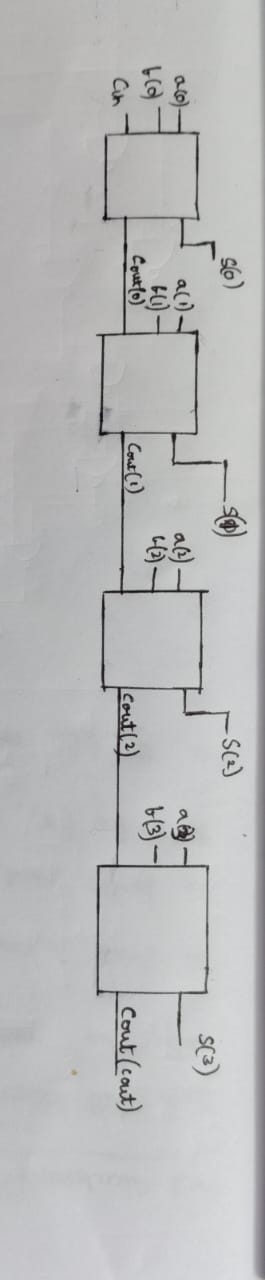 a(0)
b(0)
Cin
S(0)
Cout(0)
a(1)
b(1)
Cout(1)
a(2)
b(2)
S(2)
Cout(2)
b(3)
S(3)
Cout(cout)